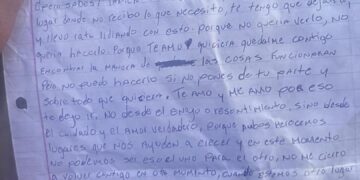 lugar donde no recibo lo que necesito, te tengo que dejar
y llevo rato lidiando con esto. Porque no quería verlo, no
quería hacerlo. Porque TE AMO y quisiera quedarme contigo
Encontrar la manera de las cosas funcionaran
Pero no puedo hacerlo si no pones de tu parte y
sobre todo que quisiera, TE AMO y ME AMO por eso
te dejo ir, no desde el enojo o resentimiento, sino desde
el cuidado y el amor verdadero, Porque ambos merecemos
lugares que nos ayuden a crecer y en este momento
no podemos ser eso el uno para el otro, no me cierro
a volver contigo en otro momento, cuando estemos otro lugar